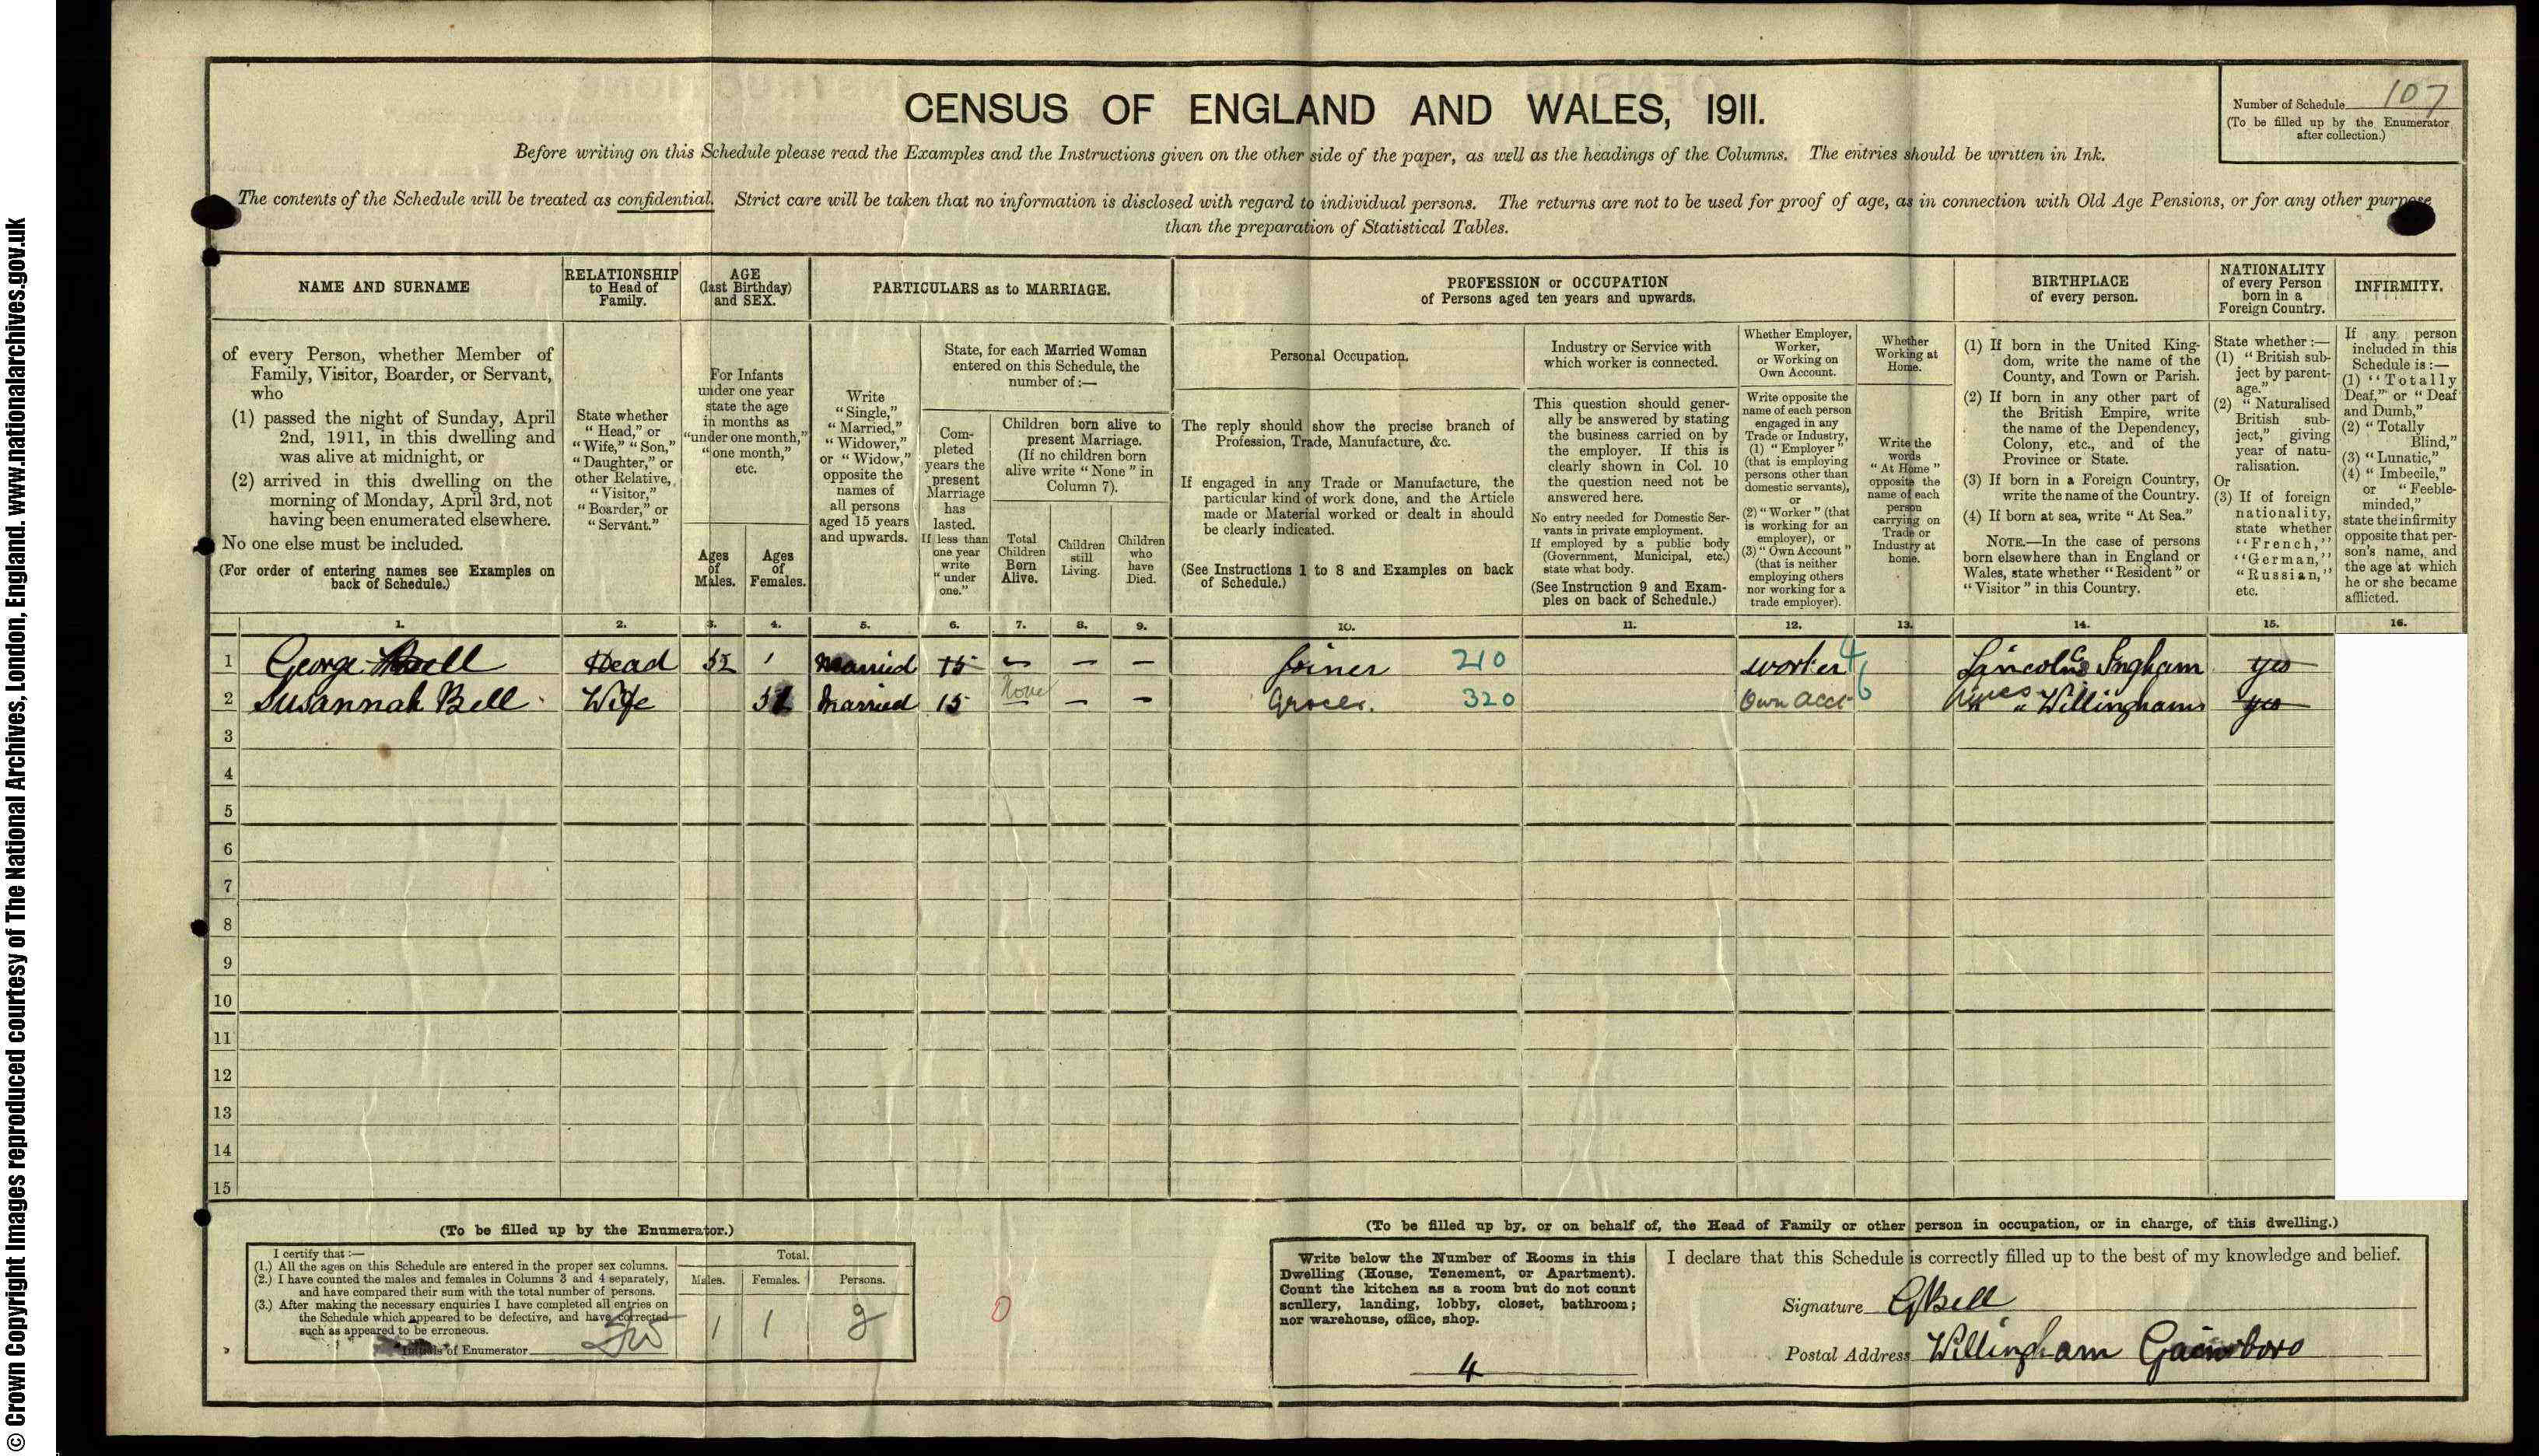 CENSUS OF ENGLAND AND WALES, 1911.
Number of Schedule 107
(To be filled up by the Enumerator
after collection.)
Before writing on this Schedule please read the Examples and the Instructions given on the other side of the paper, as well as the headings of the Columns. The entries should be written in Ink.
The contents of the Schedule will be treated as confidential. Strict care will be taken that no information is disclosed with regard to individual persons. The returns are not to be used for proof of age, as in connection with Old Age Pensions, or for any other purpose
than the preparation of Statistical Tables.
NAME AND SURNAME
of every Person, whether Member of
Family, Visitor, Boarder, or Servant,
who
(1) passed the night of Sunday, April
2nd, 1911, in this dwelling and
was alive at midnight, or
(2) arrived in this dwelling on the
morning of Monday, April 3rd, not
having been enumerated elsewhere.
No one else must be included.
(For order of entering names see Examples on
back of Schedule.)
RELATIONSHIP
to Head of
Family.
State whether
"Head," or
"Wife," "Son,"
"Daughter," or
other Relative,
"Visitor,"
"Boarder," or
"Servant."
AGE
(last Birthday)
and SEX.
For Infants
under one year
state the age
in months as
"under one month,"
"one month,"
etc.
Ages
of
Males.
Ages
of
Females.
PARTICULARS as to MARRIAGE.
Write
"Single,"
"Married,"
"Widower,"
or "Widow,"
opposite the
names of
all persons
aged 15 years
and upwards.
State, for each Married Woman
entered on this Schedule, the
number of:—
Com-
pleted
years the
present
Marriage
has
lasted.
If less than
one year
write
"under
one."
Children born alive to
present Marriage.
(If no children born
alive write "None" in
Column 7).
Total
Children
Born
Alive.
Children
still
Living.
Children
who
have
Died.
PROFESSION or OCCUPATION
of Persons aged ten years and upwards.
Personal Occupation.
The reply should show the precise branch of
Profession, Trade, Manufacture, &c.
If engaged in any Trade or Manufacture, the
particular kind of work done, and the Article
made or Material worked or dealt in should
be clearly indicated.
(See Instructions 1 to 8 and Examples on back
of Schedule.)
Industry or Service with
which worker is connected.
This question should gener-
ally be answered by stating
the business carried on by
the employer. If this is
clearly shown in Col. 10
the question need not be
answered here.
No entry needed for Domestic Ser-
vants in private employment.
If employed by a public body
(Government, Municipal, etc.)
state what body.
(See Instruction 9 and Exam-
ples on back of Schedule.)
Whether Employer,
Worker,
or Working on
Own Account.
Write opposite the
name of each person
engaged in any
Trade or Industry,
(1) "Employer"
(that is employing
persons other than
domestic servants),
or
(2) "Worker" (that
is working for an
employer), or
(3) "Own Account"
(that is neither
employing others
nor working for a
trade employer).
Whether
Working at
Home.
Write the
words
"At Home"
opposite the
name of each
person
carrying on
Trade or
Industry at
home.
BIRTHPLACE
of every person.
(1) If born in the United King-
dom, write the name of the
County, and Town or Parish.
(2) If born in any other part of
the British Empire, write
the name of the Dependency,
Colony, etc., and of the
Province or State.
(3) If born in a Foreign Country,
write the name of the Country.
(4) If born at sea, write "At Sea."
NOTE.—In the case of persons
born elsewhere than in England or
Wales, state whether "Resident" or
"Visitor" in this Country.
NATIONALITY
of every Person
born in a
Foreign Country.
State whether:—
(1) "British sub-
ject by parent-
age."
(2) "Naturalised
British sub-
ject," giving
year of natu-
ralisation.
Or
(3) If of foreign
nationality,
state whether
"French,"
"German,"
"Russian,"
etc.
INFIRMITY.
If any person
included in this
Schedule is:—
(1) "Totally
Deaf," or "Deaf
and Dumb,"
(2) "Totally
Blind,"
(3) "Lunatic,"
(4) "Imbecile,"
or "Feeble-
minded,"
state the infirmity
opposite that per-
son's name, and
the age at which
he or she became
afflicted.
1. 2. 3. 4. 5. 6. 7. 8. 9. 10. 11. 12. 13. 14. 15. 16.
1 George Bell Head 52 Married 15 – – – Joiner 210 Worker 4 Lincoln Ingham yes
2 Susannah Bell Wife Married 15 None – – Grocer. 320 Own Acct 6 " Willingham yes
3
4
5
6
7
8
9
10
11
12
13
14
15
(To be filled up by the Enumerator.)
I certify that:—
(1.) All the ages on this Schedule are entered in the proper sex columns.
(2.) I have counted the males and females in Columns 3 and 4 separately,
and have compared their sum with the total number of persons.
(3.) After making the necessary enquiries I have completed all entries on
the Schedule which appeared to be defective, and have corrected
such as appeared to be erroneous.
Initials of Enumerator
Total.
Males. Females. Persons.
1 1 2
0
(To be filled up by, or on behalf of, the Head of Family or other person in occupation, or in charge, of this dwelling.)
Write below the Number of Rooms in this
Dwelling (House, Tenement, or Apartment).
Count the kitchen as a room but do not count
scullery, landing, lobby, closet, bathroom;
nor warehouse, office, shop.
4
I declare that this Schedule is correctly filled up to the best of my knowledge and belief.
Signature G Bell
Postal Address Willingham Gainsboro
© Crown Copyright Images reproduced courtesy of The National Archives, London, England. www.nationalarchives.gov.uk